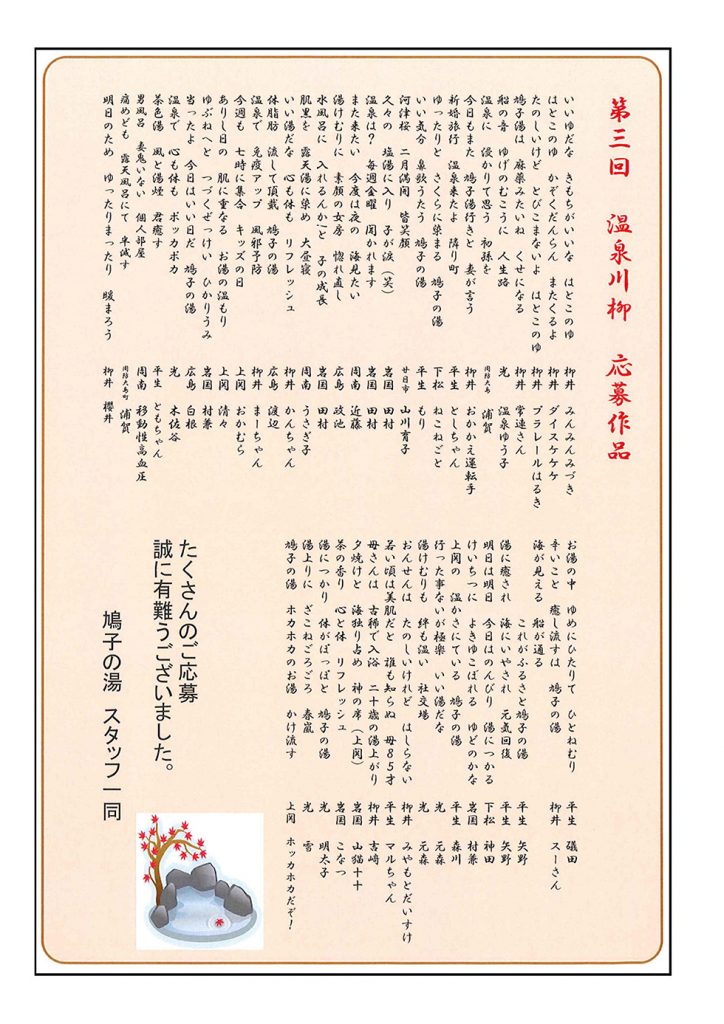 第三回 温泉川柳 応募作品
いいゆだな きもちがいいな はとこのゆ 柳井 みんみんみづき
はとこのゆ かぞくだんらん またくるよ 柳井 ダイスケケケ
たのしいけど とびこまないよ はとこのゆ 柳井 プラレールはるき
鳩子湯は 麻薬みたいね くせになる 柳井 常連さん
船の音 ゆげのむこうに 人生路 光 温泉ゆう子
温泉に 浸かりて思う 初孫を 周防大島 浦賀
今日もまた 鳩子湯行きと 妻が言う 柳井 おかかえ運転手
新婚旅行 温泉来たよ 隣り町 平生 としちゃん
ゆったりと さくらに染まる 鳩子の湯 下松 ねこねごと
いい気分 鼻歌うたう 鳩子の湯 平生 もり
河津桜 二月満開 皆笑顔 廿日市 山川育子
久々の 塩湯に入り 子が涙(笑) 岩国 田村
温泉は? 毎週金曜 聞かれます 岩国 田村
また来たい 今度は夜の 海見たい 周南 近藤
湯けむりに 素顔の女房 惚れ直し 広島 政池
水風呂に 入れるんか!と 子の成長 岩国 田村
肌黒を 露天湯に染め 大昼寝 周南 うさぎ子
いい湯だな 心も体も リフレッシュ 柳井 かんちゃん
体脂肪 流して頂戴 鳩子の湯 広島 渡辺
温泉で 免疫アップ 風邪予防 柳井 まーちゃん
今週も 七時に集合 キッズの日 上関 おかむら
ありし日の 肌に重なる お湯の温もり 上関 清々
ゆぶねへと つづくぜっけい ひかりうみ 岩国 村兼
当ったよ 今日はいい日だ 鳩子の湯 広島 白根
温泉で 心も体も ポッカポカ 光 木佐谷
茶色湯 風と湯煙 君癒す 平生 ともちゃん
男風呂 妻鬼いない 個人部屋 周南 移動性高血圧
痛めども 露天風呂にて 半減す 周防大島町 浦賀
明日のため ゆったりまったり 暖まろう 柳井 櫻井
お湯の中 ゆめにひたりて ひとねむり 平生 礒田
辛いこと 癒し流すは 鳩子の湯 柳井 スーさん
海が見える 船が通る これがふるさと鳩子の湯 平生 矢野
湯に癒され 海にいやされ 元気回復 平生 矢野
明日は明日 今日はのんびり 湯につかる 下松 神田
けいちつに よきゆこぼれる ゆどのかな 岩国 村兼
上関の 温かさにている 鳩子の湯 平生 森川
行った事ないが極楽 いい湯だな 光 元森
湯けむりも 絆も温い 社交場 光 元森
おんせんは たのしいけれど はしらない 柳井 みやもとだいすけ
若い頃は美肌だと 誰も知らぬ 母85才 平生 マルちゃん
母さんは 古稀で入浴 二十歳の湯上がり 柳井 古﨑
夕焼けと 海独り占め 神の席(上関) 岩国 山猫十十
茶の香り 心と体 リフレッシュ 岩国 こなつ
湯につかり 体がぽっぽと 鳩子の湯 光 明太子
湯上りに ざこねごろごろ 春嵐 光 雪
鳩子の湯 ホカホカのお湯 かけ流す 上関 ホッカホカだぞ!
たくさんのご応募
誠に有難うございました。
鳩子の湯 スタッフ一同